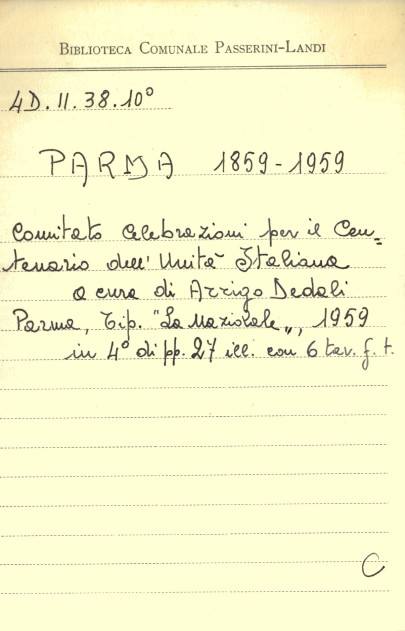 BIBLIOTECA COMUNALE PASSERINI-LANDI
4D.II.38.10°
PARMA 1859-1959
Comitato Celebrazioni per il Cen=
tenario dell'Unità Italiana
a cura di Arrigo Dedali
Parma, Tip. "La Nazionale„, 1959
in 4° di pp. 27 ill. con 6 tav. f. t.
C